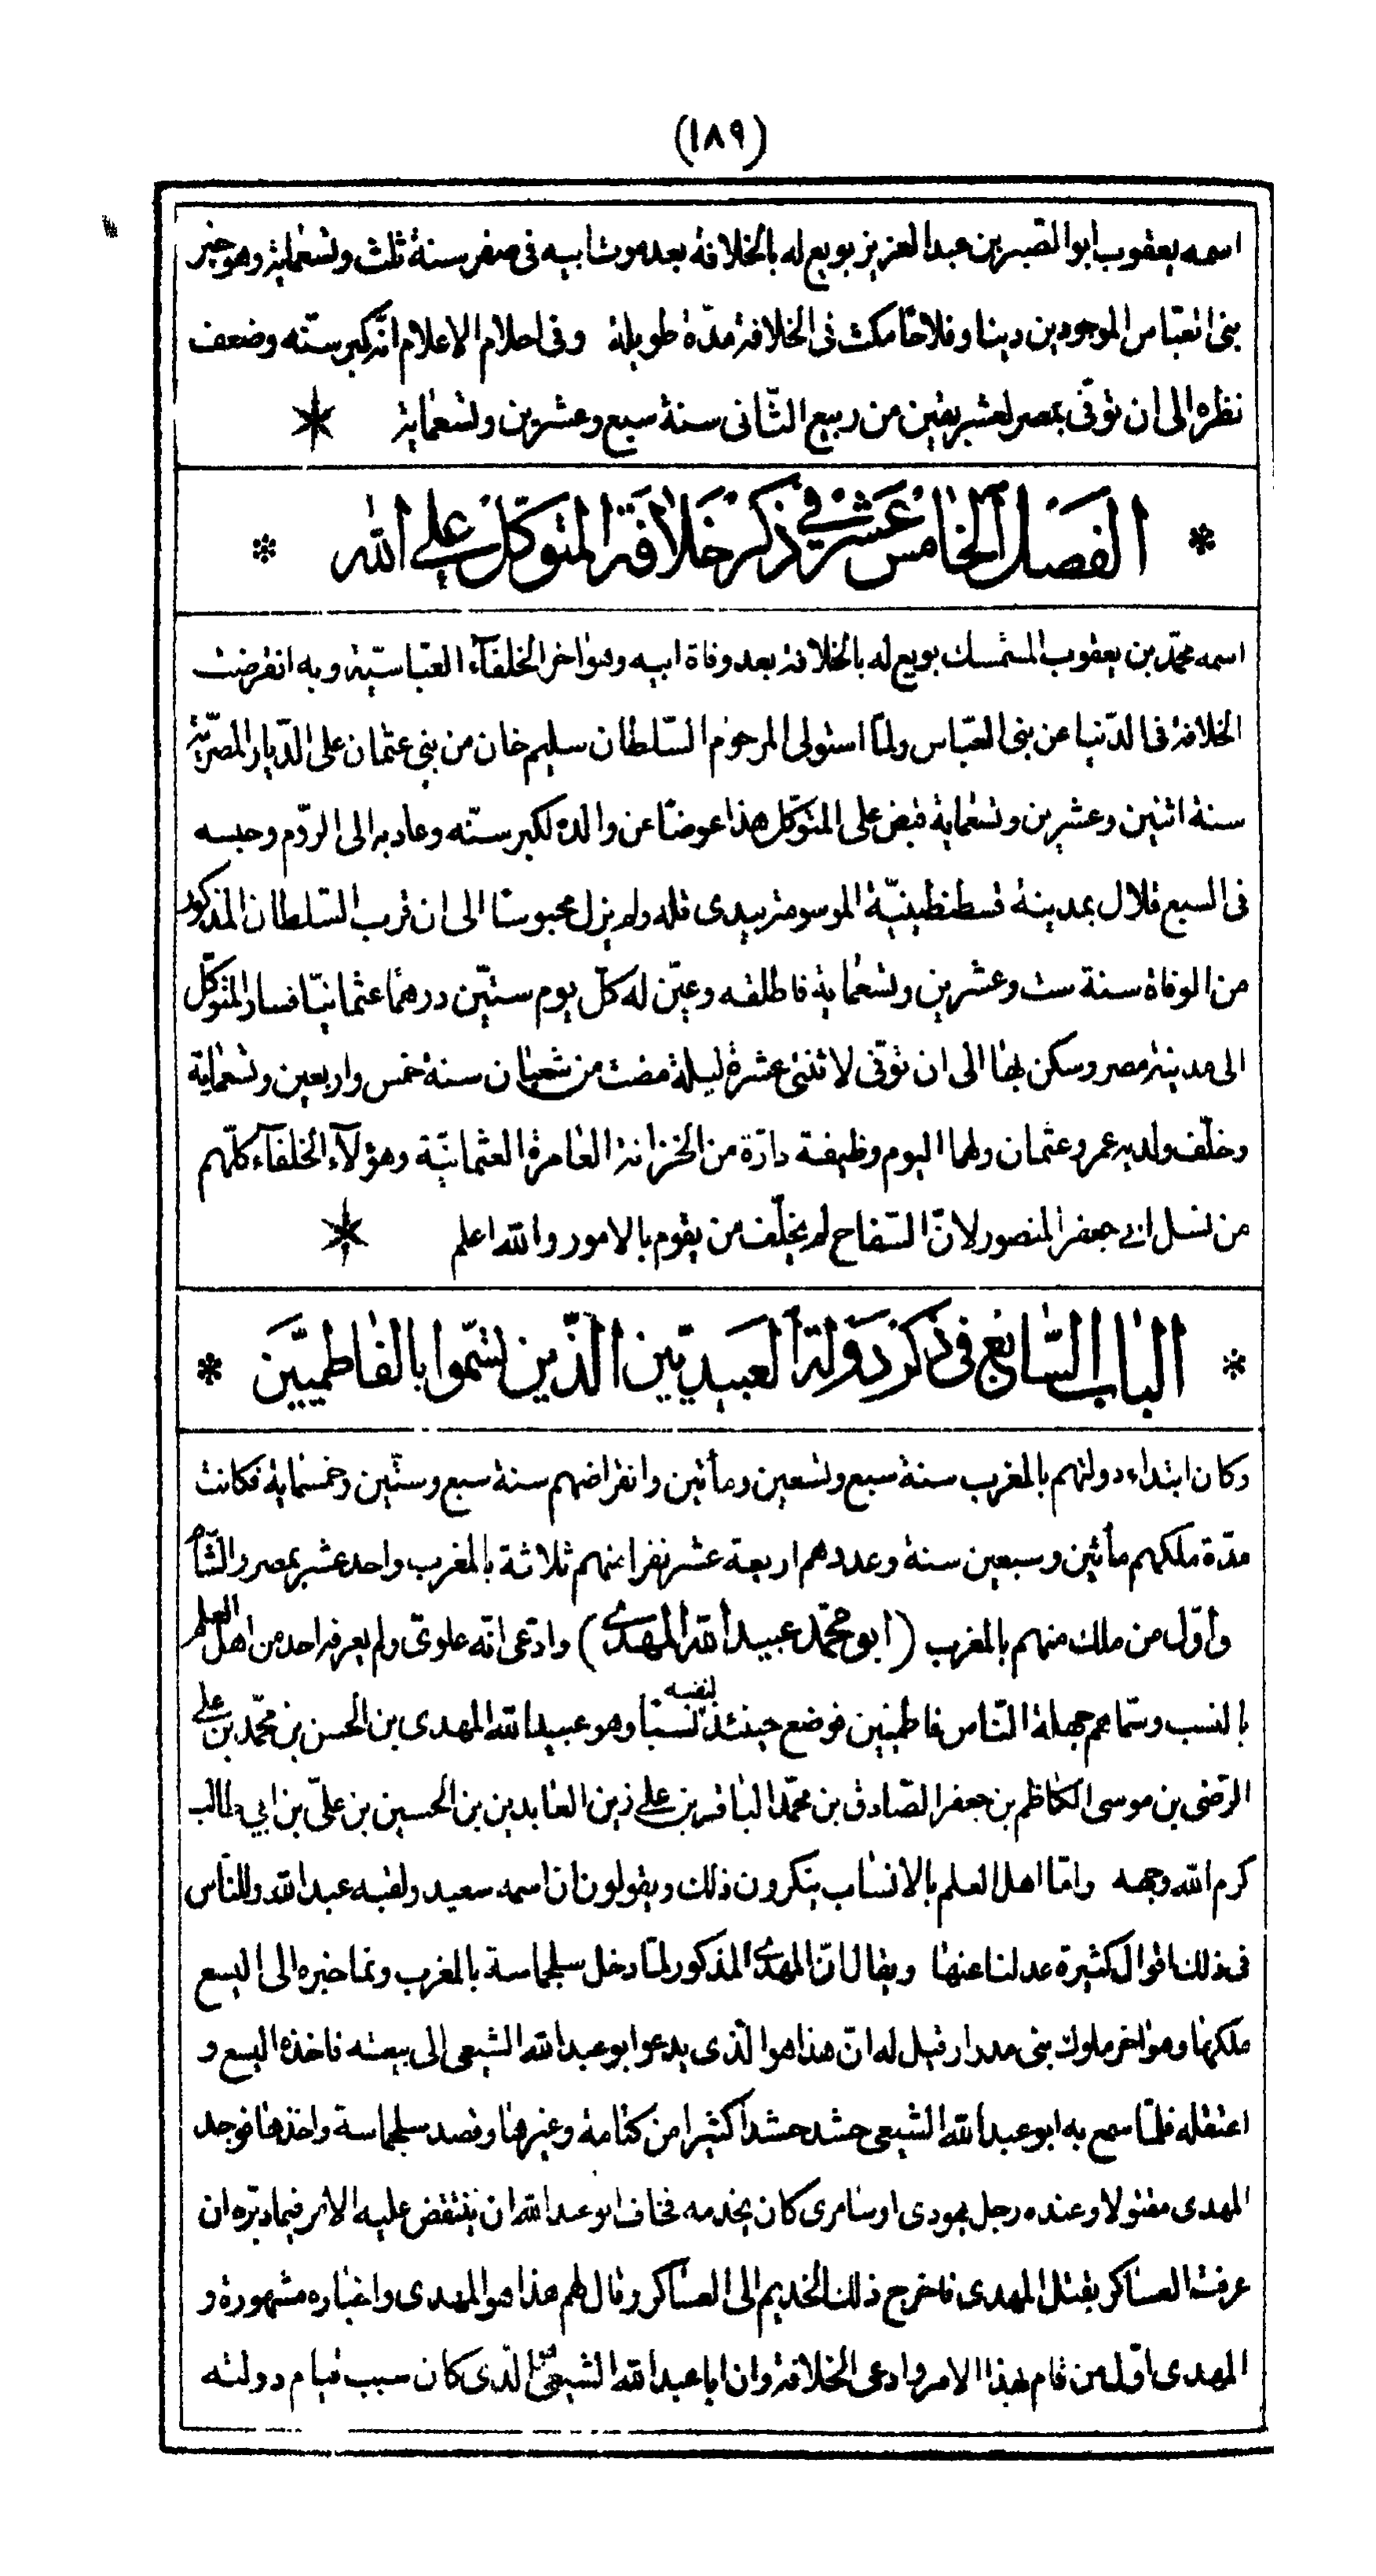 (١٨٩)
اسمه يعقوب ابو الصبر بن عبد العزيز بويع له بالخلافة بعد موت ابيه فى صفر سنة ثلث وتسعماية وهو خير
بنى العباس الموجودين دينا وفلاحا مكث فى الخلافة مدّة طويلة وفى اعلام الاعلام انّه كبر سنّه وضعف
نظره الى ان توفّى بمصر لعشر بقين من ربيع الثّانى سنة سبع وعشرين وتسعماية
* الفَصْل الخامس عَشَر في ذكر خَلافة المتوكّل علي اللّه *
اسمه محمّد بن يعقوب المستمسك بويع له بالخلافة بعد وفاة ابيه وهو اخر الخلفآء العبّاسيّة وبه انقرضت
الخلافة فى الدّنيا عن بنى العبّاس ولمّا استولى المرحوم السّلطان سليم خان من بنى عثمان على الدّيار المصريّة
سنة اثنين وعشرين وتسعماية قبض على المتوكّل هذا عوضا عن والده لكبر سنّه وعاد به الى الرّوم وحبسه
فى السبع قلال بمدينة قسطنطينيّة الموسومة بيدى قله ولم يزل محبوسا الى ان قرب السّلطان المذكور
من الوفاة سنة ست وعشرين وتسعماية فاطلقه وعيّن له كلّ يوم ستّين درهما عثمانيّا فسار المتوكّل
الى مدينة مصر وسكن بها الى ان توفّى لاثنتى عشرة ليلة مضت من شعبان سنة خمس واربعين وتسعماية
وخلّف ولديه عمر وعثمان ولهما اليوم وظيفة دارّة من الخزانة العامرة العثمانيّة وهؤلآء الخلفآء كلّهم
من نسل ابي جعفر المنصور لانّ السّفاح لم يخلّف من يقوم بالامور والله اعلم
* الباب السّابع فى ذكر دَولة العبيديّين الذّين تسمّوا بالفاطميّين *
وكان ابتداء دولتهم بالمغرب سنة سبع وتسعين ومأتين وانقراضهم سنة سبع وستّين وخمسماية فكانت
مدّة ملكهم مأتين وسبعين سنة وعددهم اربعة عشر نفرا منهم ثلاثة بالمغرب واحد عشر بمصر والشّأم
وأوّل من ملك منهم بالمغرب (ابو محمّد عبيد الله المهدي) وادّعى انّه علوىّ ولم يعرفه احد من اهل العلم
بالنسب وسمّاهم جهلة النّاس فاطميّين فوضع حينئذ لنفسه نسبا وهو عبيد الله المهدى بن الحسن بن محمّد بن علي
الرّضى بن موسى الكاظم بن جعفر الصّادق بن محمّد الباقر بن علي زين العابدين بن الحسين بن علىّ بن ابي طالب
كرم الله وجهه وامّا اهل العلم بالانساب ينكرون ذلك ويقولون ان اسمه سعيد ولقبه عبد الله وللنّاس
فى ذلك اقوال كثيرة عدلنا عنها ويقال انّ المهدي المذكور لمّا دخل سجلماسة بالمغرب ونما خبره الى اليسع
ملكها وهو اخر ملوك بنى مدرار قيل له انّ هذا هو الّذى يدعوا ابو عبد الله الشيعى الى بيعته فاخذه اليسع و
اعتقله فلمّا سمع به ابو عبد الله الشيعى حشد حشدا كثيرا من كتامة وغيرها وقصد سجلماسة واخذها فوجد
المهدى مقتولا وعنده رجل يهودى او سامرى كان يخدمه فخاف ابو عبد الله ان ينتقض عليه الامر فيما دبّره ان
عرفت العساكر بقتل المهدى فاخرج ذلك الخديم الى العساكر وقال لهم هذا هو المهدى واخباره مشهورة و
المهدى اوّل من قام بهذا الامر وادعى الخلافة وان ابا عبد الله الشيعىّ الّذى كان سبب قيام دولته